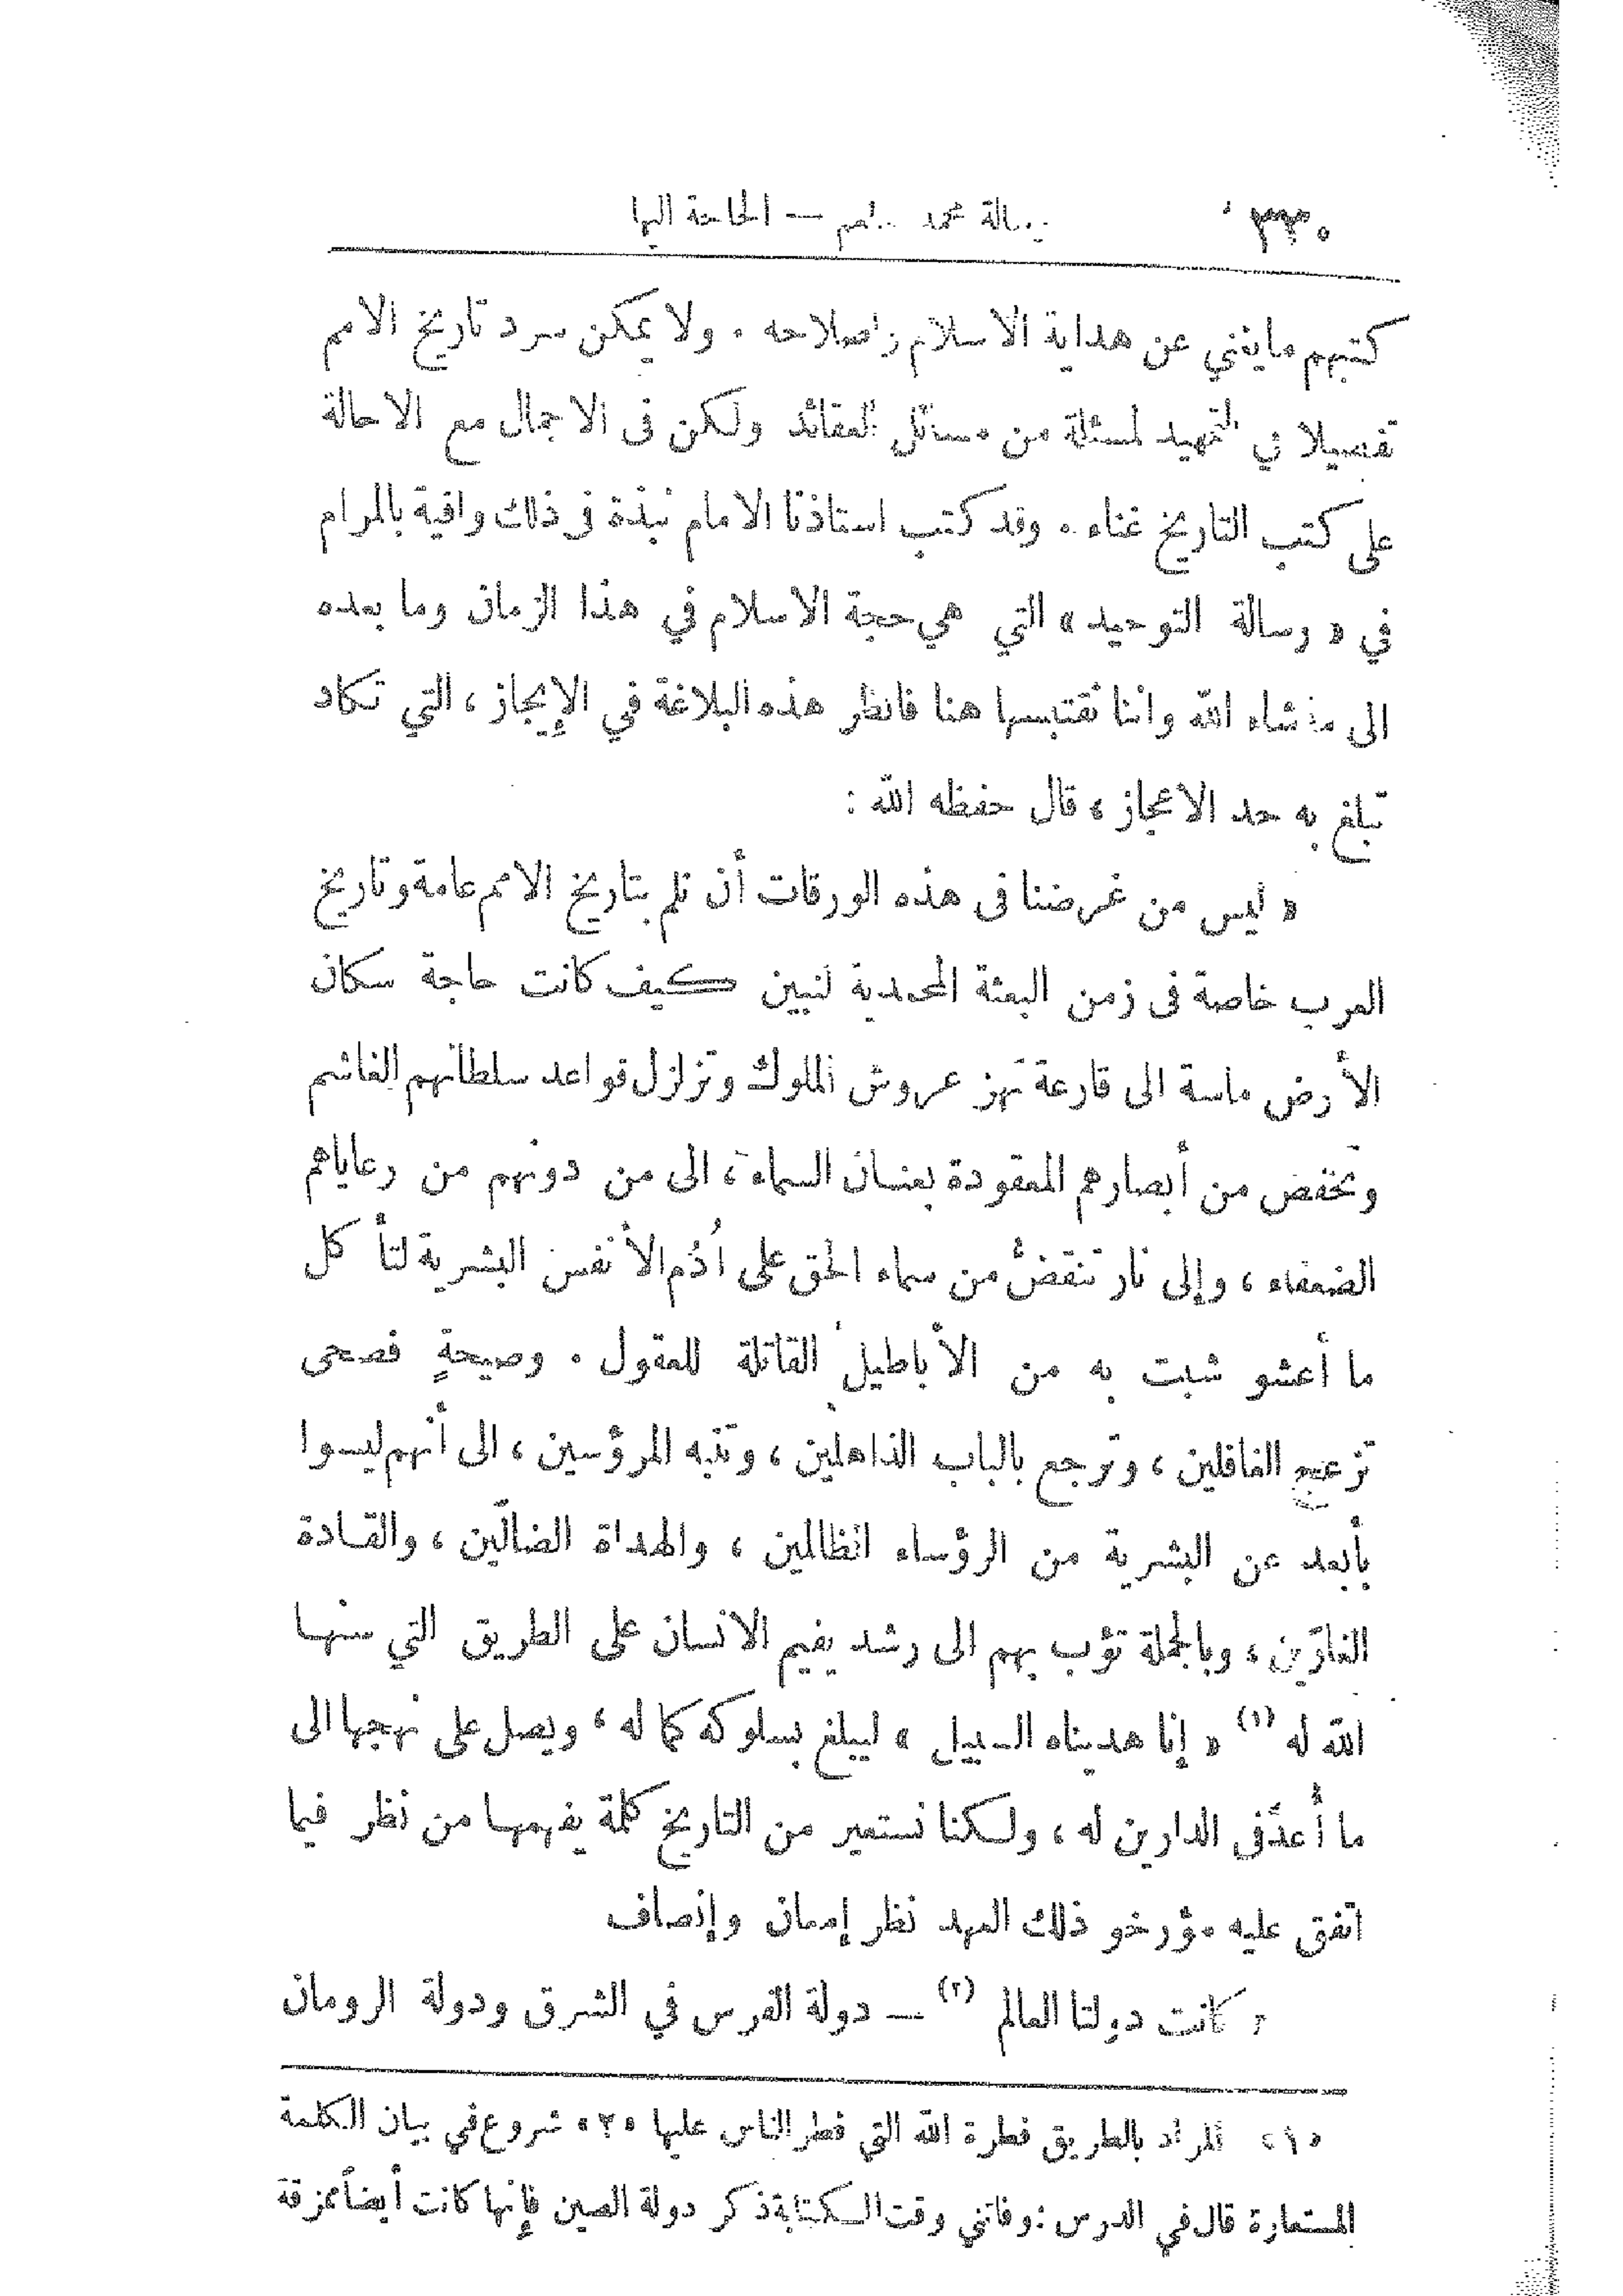 رسالة محمد صلعم — الحاجة اليها
كتبهم ما يغني عن هداية الاسلام وإصلاحه . ولا يمكن سرد تاريخ الامم
تفصيلا في التمهيد لمسئلة من مسائل العقائد ولكن فى الاجمال مع الاحالة
على كتب التاريخ غناء . وقد كتب استاذنا الامام نبذة فى ذلك وافية بالمرام
في « رسالة التوحيد » التي هي حجة الاسلام في هذا الزمان وما بعده
الى ما شاء الله واننا نقتبسها هنا فانظر هذه البلاغة في الإيجاز ، التي تكاد
تبلغ به حد الاعجاز ، قال حفظه الله :
« ليس من غرضنا فى هذه الورقات أن نلم بتاريخ الامم عامة وتاريخ
العرب خاصة فى زمن البعثة المحمدية لنبين كيف كانت حاجة سكان
الأرض ماسة الى قارعة تهز عروش الملوك وتزلزل قواعد سلطانهم الغاشم
وتخفض من أبصارهم المعقودة بعنان السماء ، الى من دونهم من رعاياهم
الضعفاء ، وإلى نار تنقضُّ من سماء الحق على أُدُم الأنفس البشرية لتأكل
ما أعشوشبت به من الأباطيل القاتلة للعقول . وصيحةٍ فصحى
تزعج الغافلين ، وترجع بالباب الذاهلين ، وتنبه المرؤسين ، الى أنهم ليسوا
بأبعد عن البشرية من الرؤساء الظالمين ، والهداة الضالّين ، والقادة
الغارّين ، وبالجملة تؤب بهم الى رشد يقيم الانسان على الطريق التي سنها
الله له (١) « إنا هديناه السبيل » ليبلغ بسلوكه كماله ، ويصل على نهجها الى
ما أُعدّ فى الدارين له ، ولكنا نستعير من التاريخ كلمة يفهمها من نظر فيما
اتفق عليه مؤرخو ذلك العهد نظر إمعان وإنصاف
كانت دولتا العالم (٢) — دولة الفرس في الشرق ودولة الرومان
«١» المراد بالطريق فطرة الله التي فطر الناس عليها «٢» شروع في بيان الكلمة
المستعارة قال في الدرس : وفاتني وقت الكتابة ذكر دولة الصين فإنها كانت أيضاً ممزقة